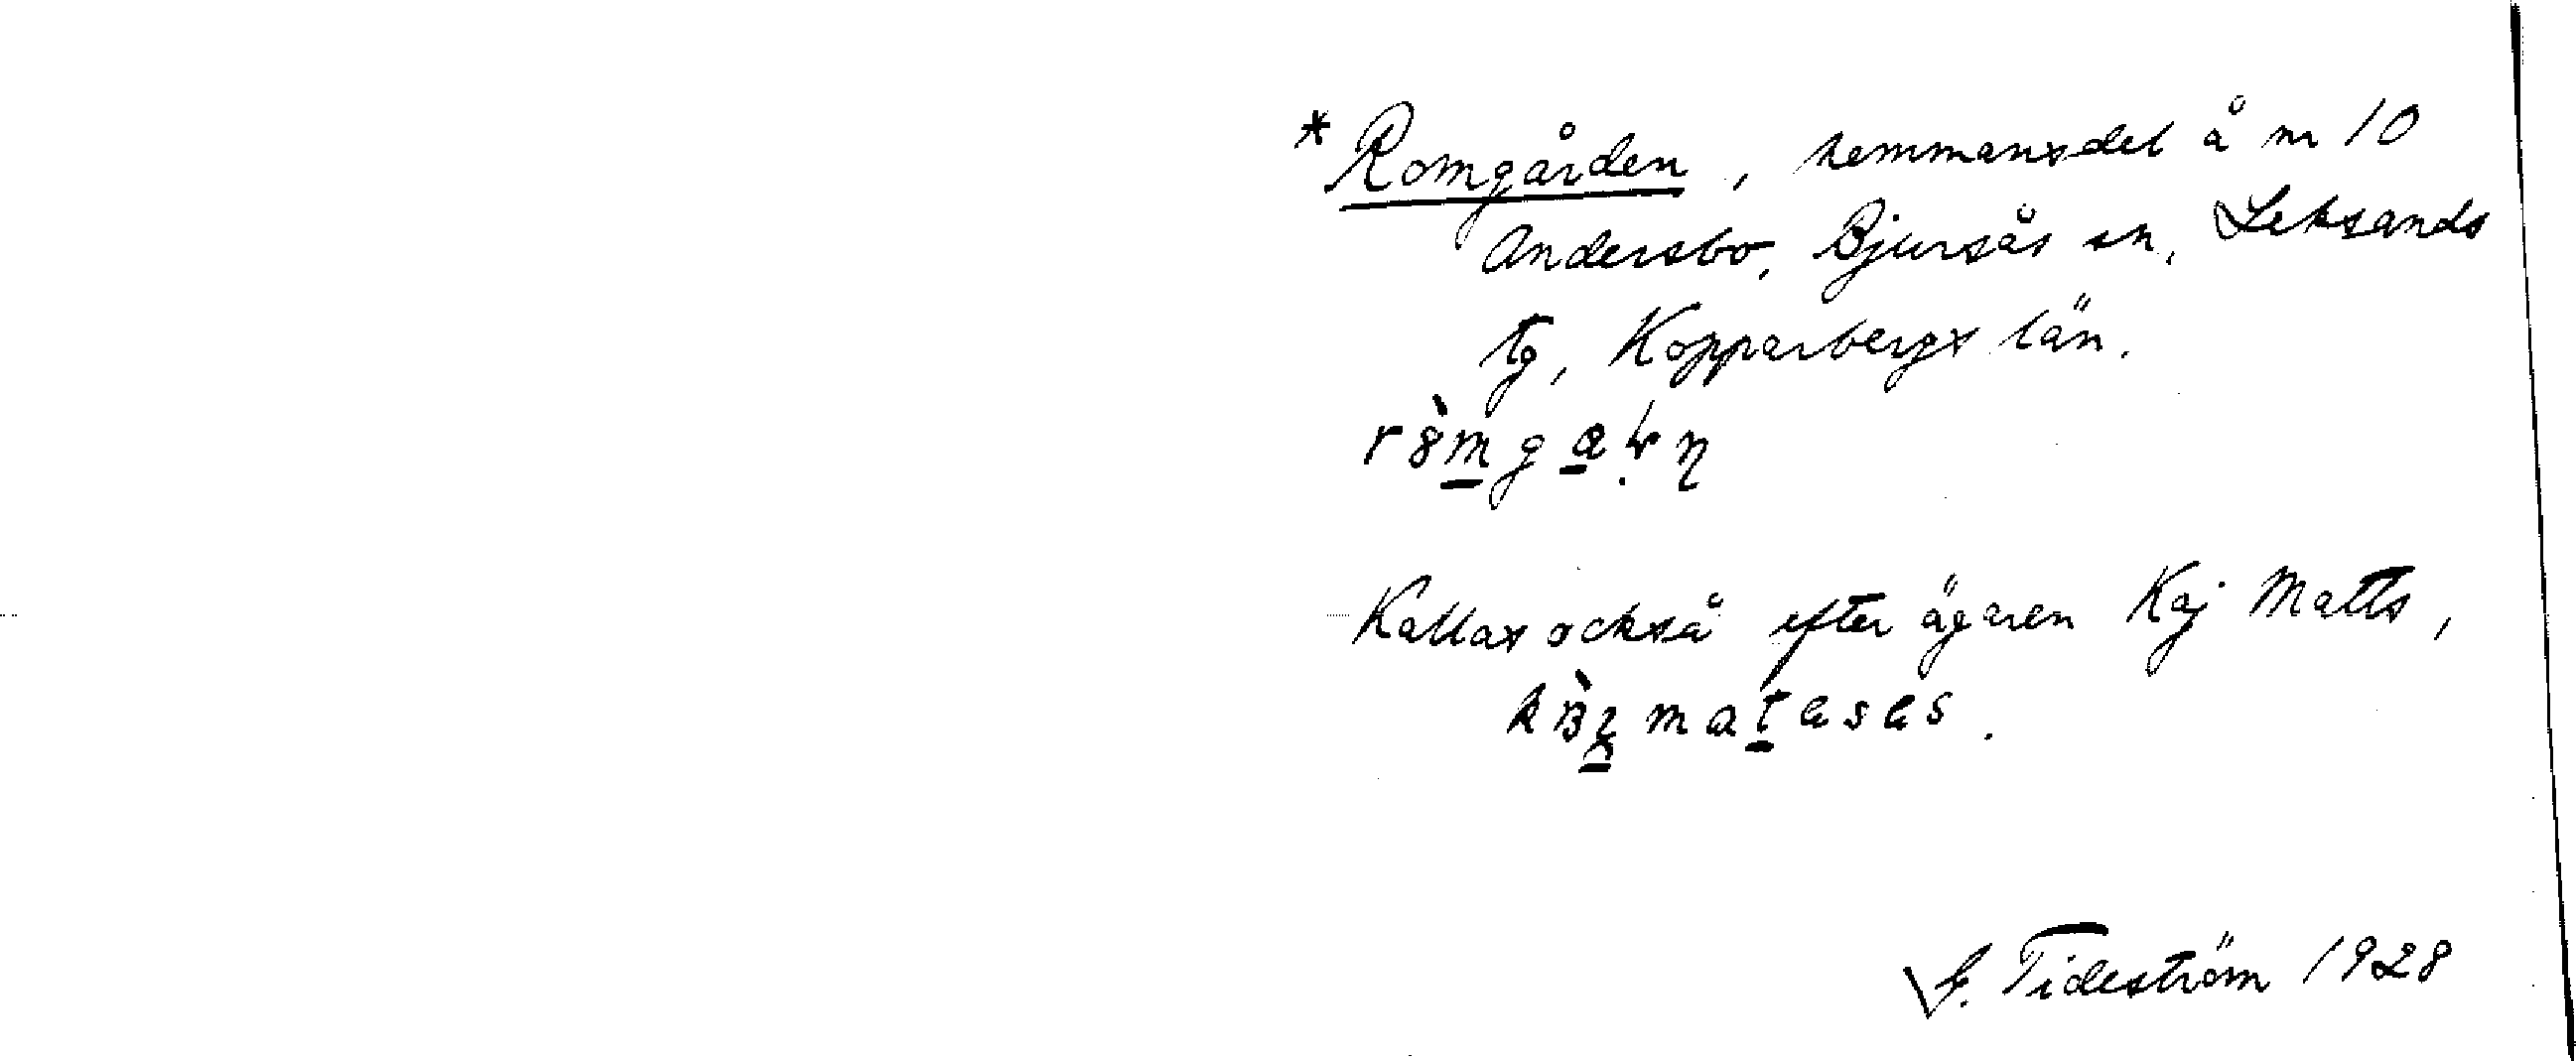 *Romgården, hemmansdel å nr 10
Andersbo, Bjursås sn, Leksands
tg, Kopparbergs län.
Kallas också efter ägaren Kaj Matts,
G. Tideström 1928